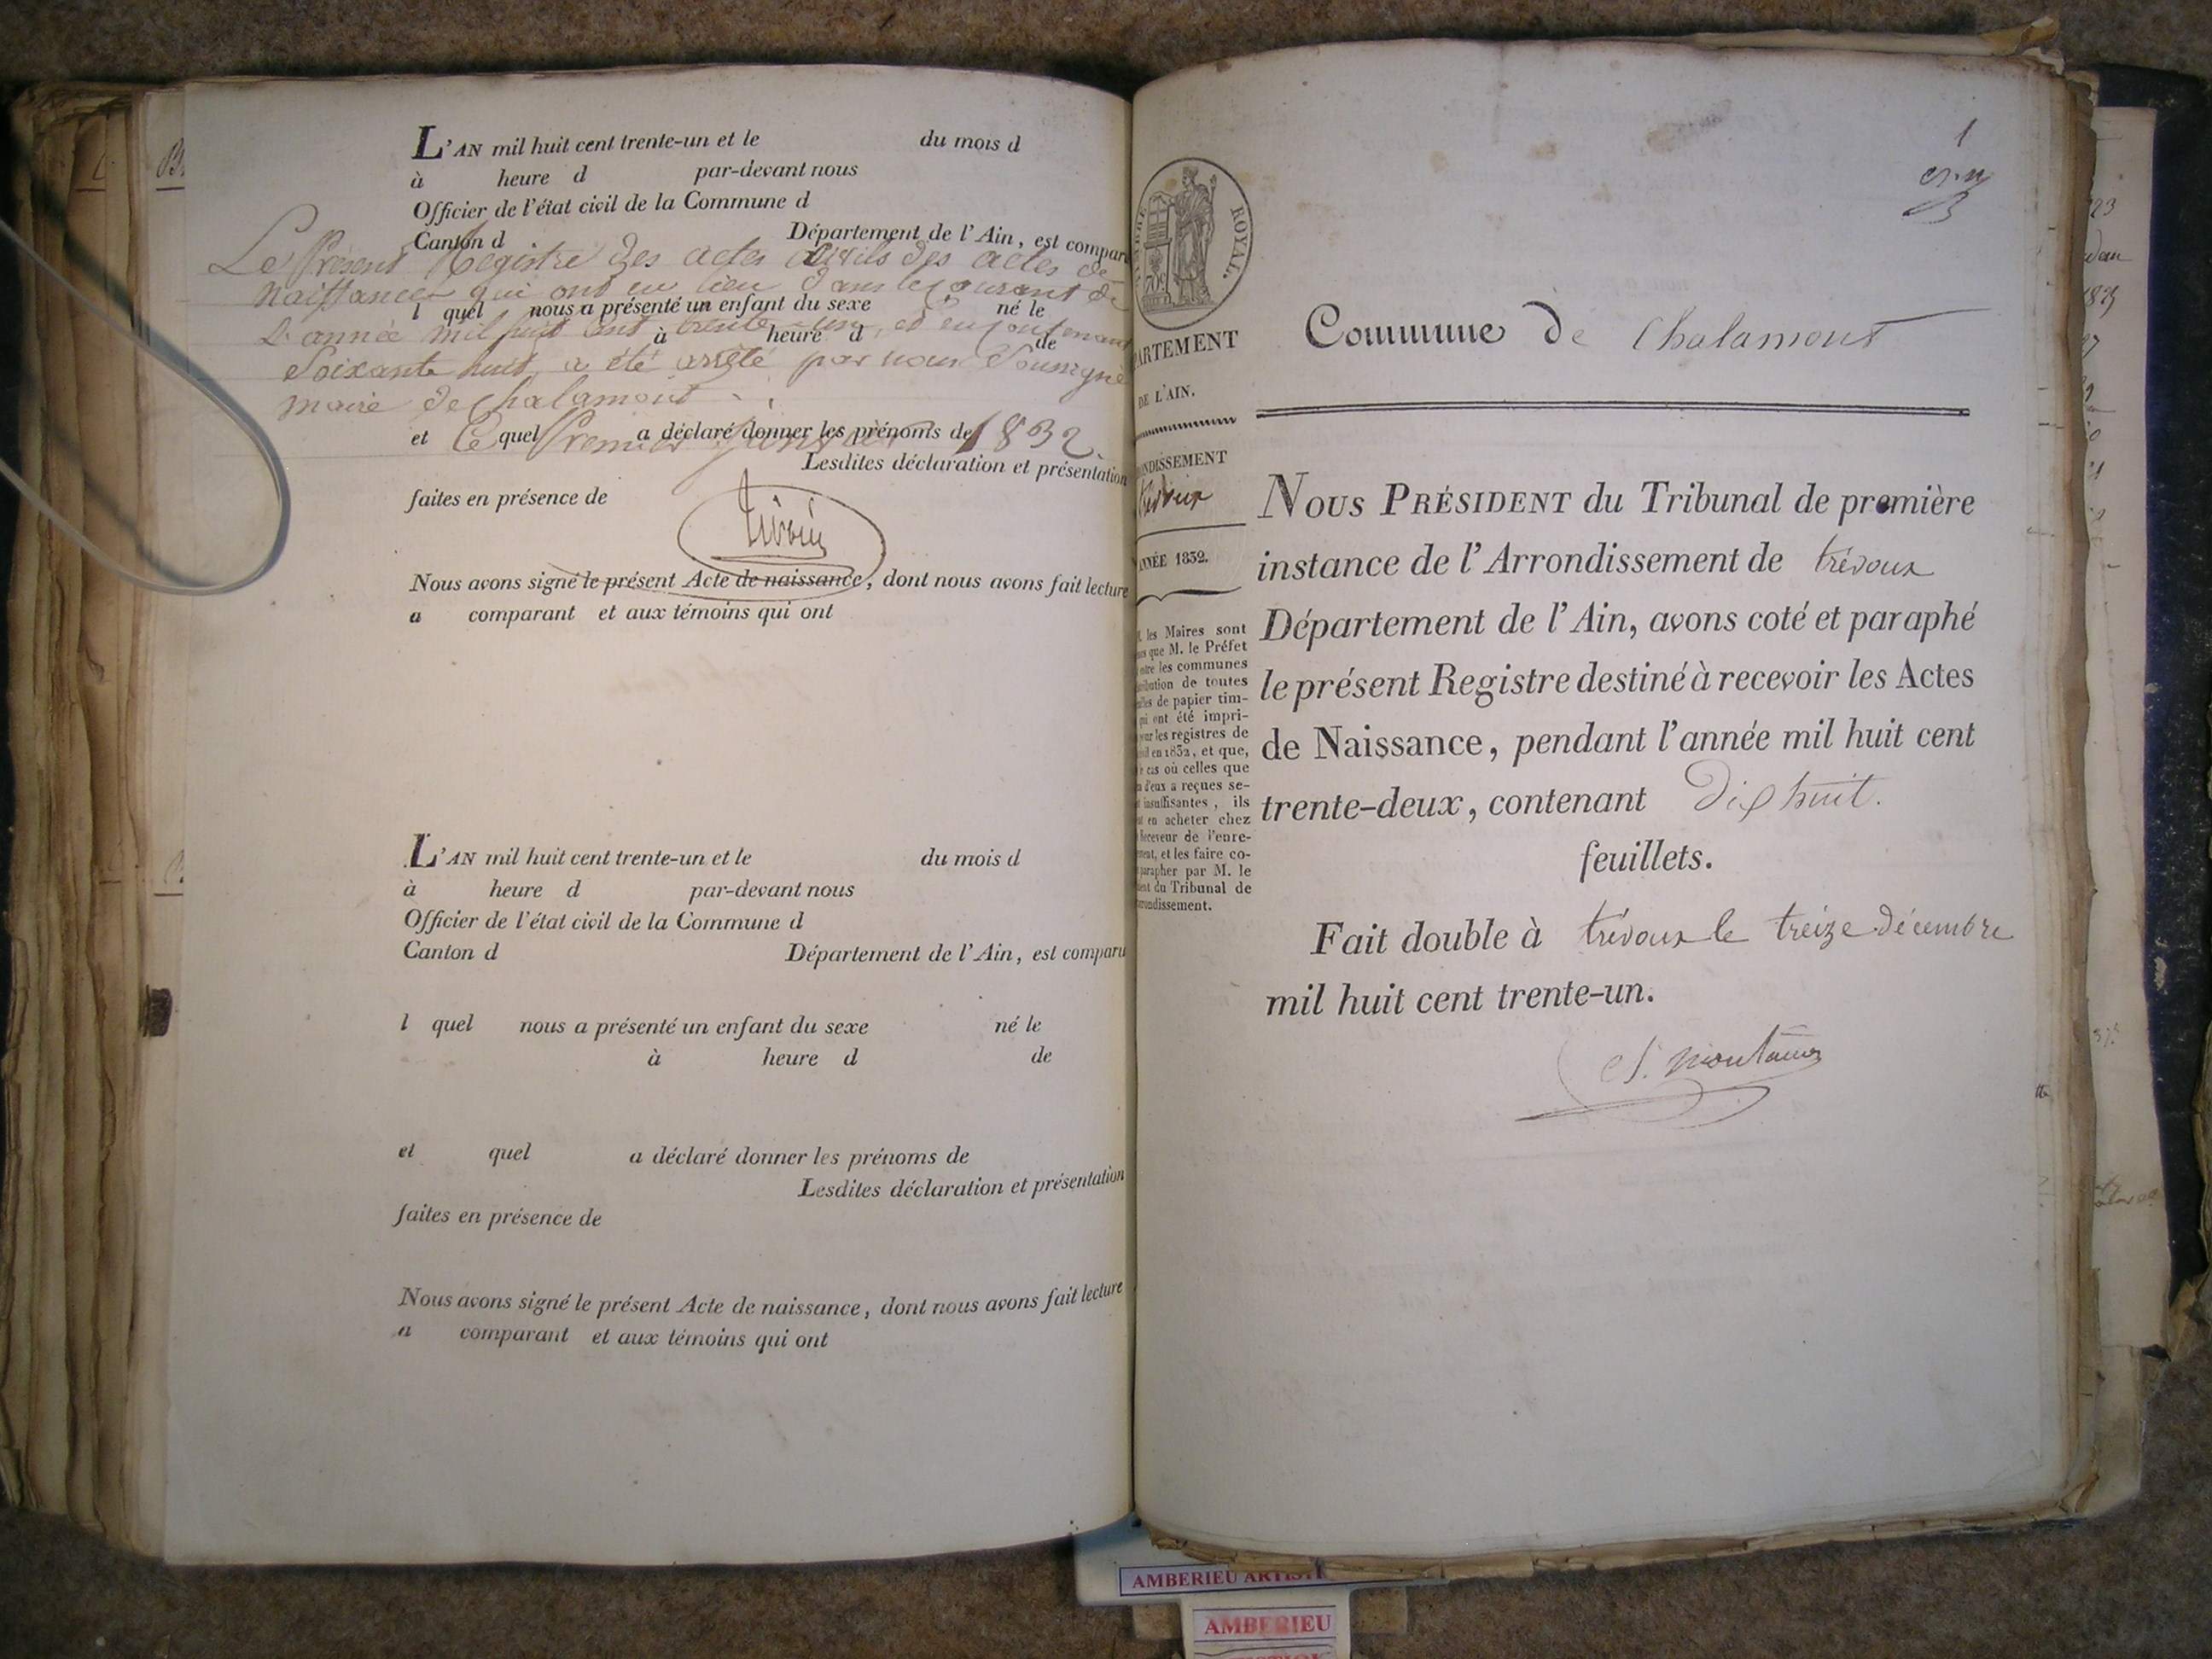 L'AN mil huit cent trente-un et le du mois d
à heure d par-devant nous
Officier de l'état civil de la Commune d
Canton d Département de l'Ain, est compar
Le Présent Registre des actes civils des actes de
naissances qui ont eu lieu dans le courant de
l quel nous a présenté un enfant du sexe né le
L'année mil huit cent trente-un, et en contenant
à heure d de
Soixante huit, a été arrêté par nous Soussigné
maire de Chalamont
et quel a déclaré donner les prénoms de
Ce Premier Janvier 1832.
Lesdites déclaration et présentation
faites en présence de
Nous avons signé le présent Acte de naissance, dont nous avons fait lecture
a comparant et aux témoins qui ont
L'AN mil huit cent trente-un et le du mois d
à heure d par-devant nous
Officier de l'état civil de la Commune d
Canton d Département de l'Ain, est comparu
l quel nous a présenté un enfant du sexe né le
à heure d de
et quel a déclaré donner les prénoms de
Lesdites déclaration et présentation
faites en présence de
Nous avons signé le présent Acte de naissance, dont nous avons fait lecture
a comparant et aux témoins qui ont
1
ROYAL.
70c
ARTEMENT
DE L'AIN.
NDISSEMENT
NNÉE 1832.
les Maires sont
que M. le Préfet
les communes
bution de toutes
de papier tim-
qui ont été impri-
les registres de
en 1832, et que,
cas où celles que
d'eux a reçues se-
insuffisantes, ils
en acheter chez
Receveur de l'enre-
ment, et les faire co-
parapher par M. le
du Tribunal de
rondissement.
Commune de Chalamont
NOUS PRÉSIDENT du Tribunal de première
instance de l'Arrondissement de trévoux
Département de l'Ain, avons coté et paraphé
le présent Registre destiné à recevoir les Actes
de Naissance, pendant l'année mil huit cent
trente-deux, contenant Dix huit.
feuillets.
Fait double à trévoux le treize décembre
mil huit cent trente-un.
AMBERIEU ARTIST
AMBERIEU